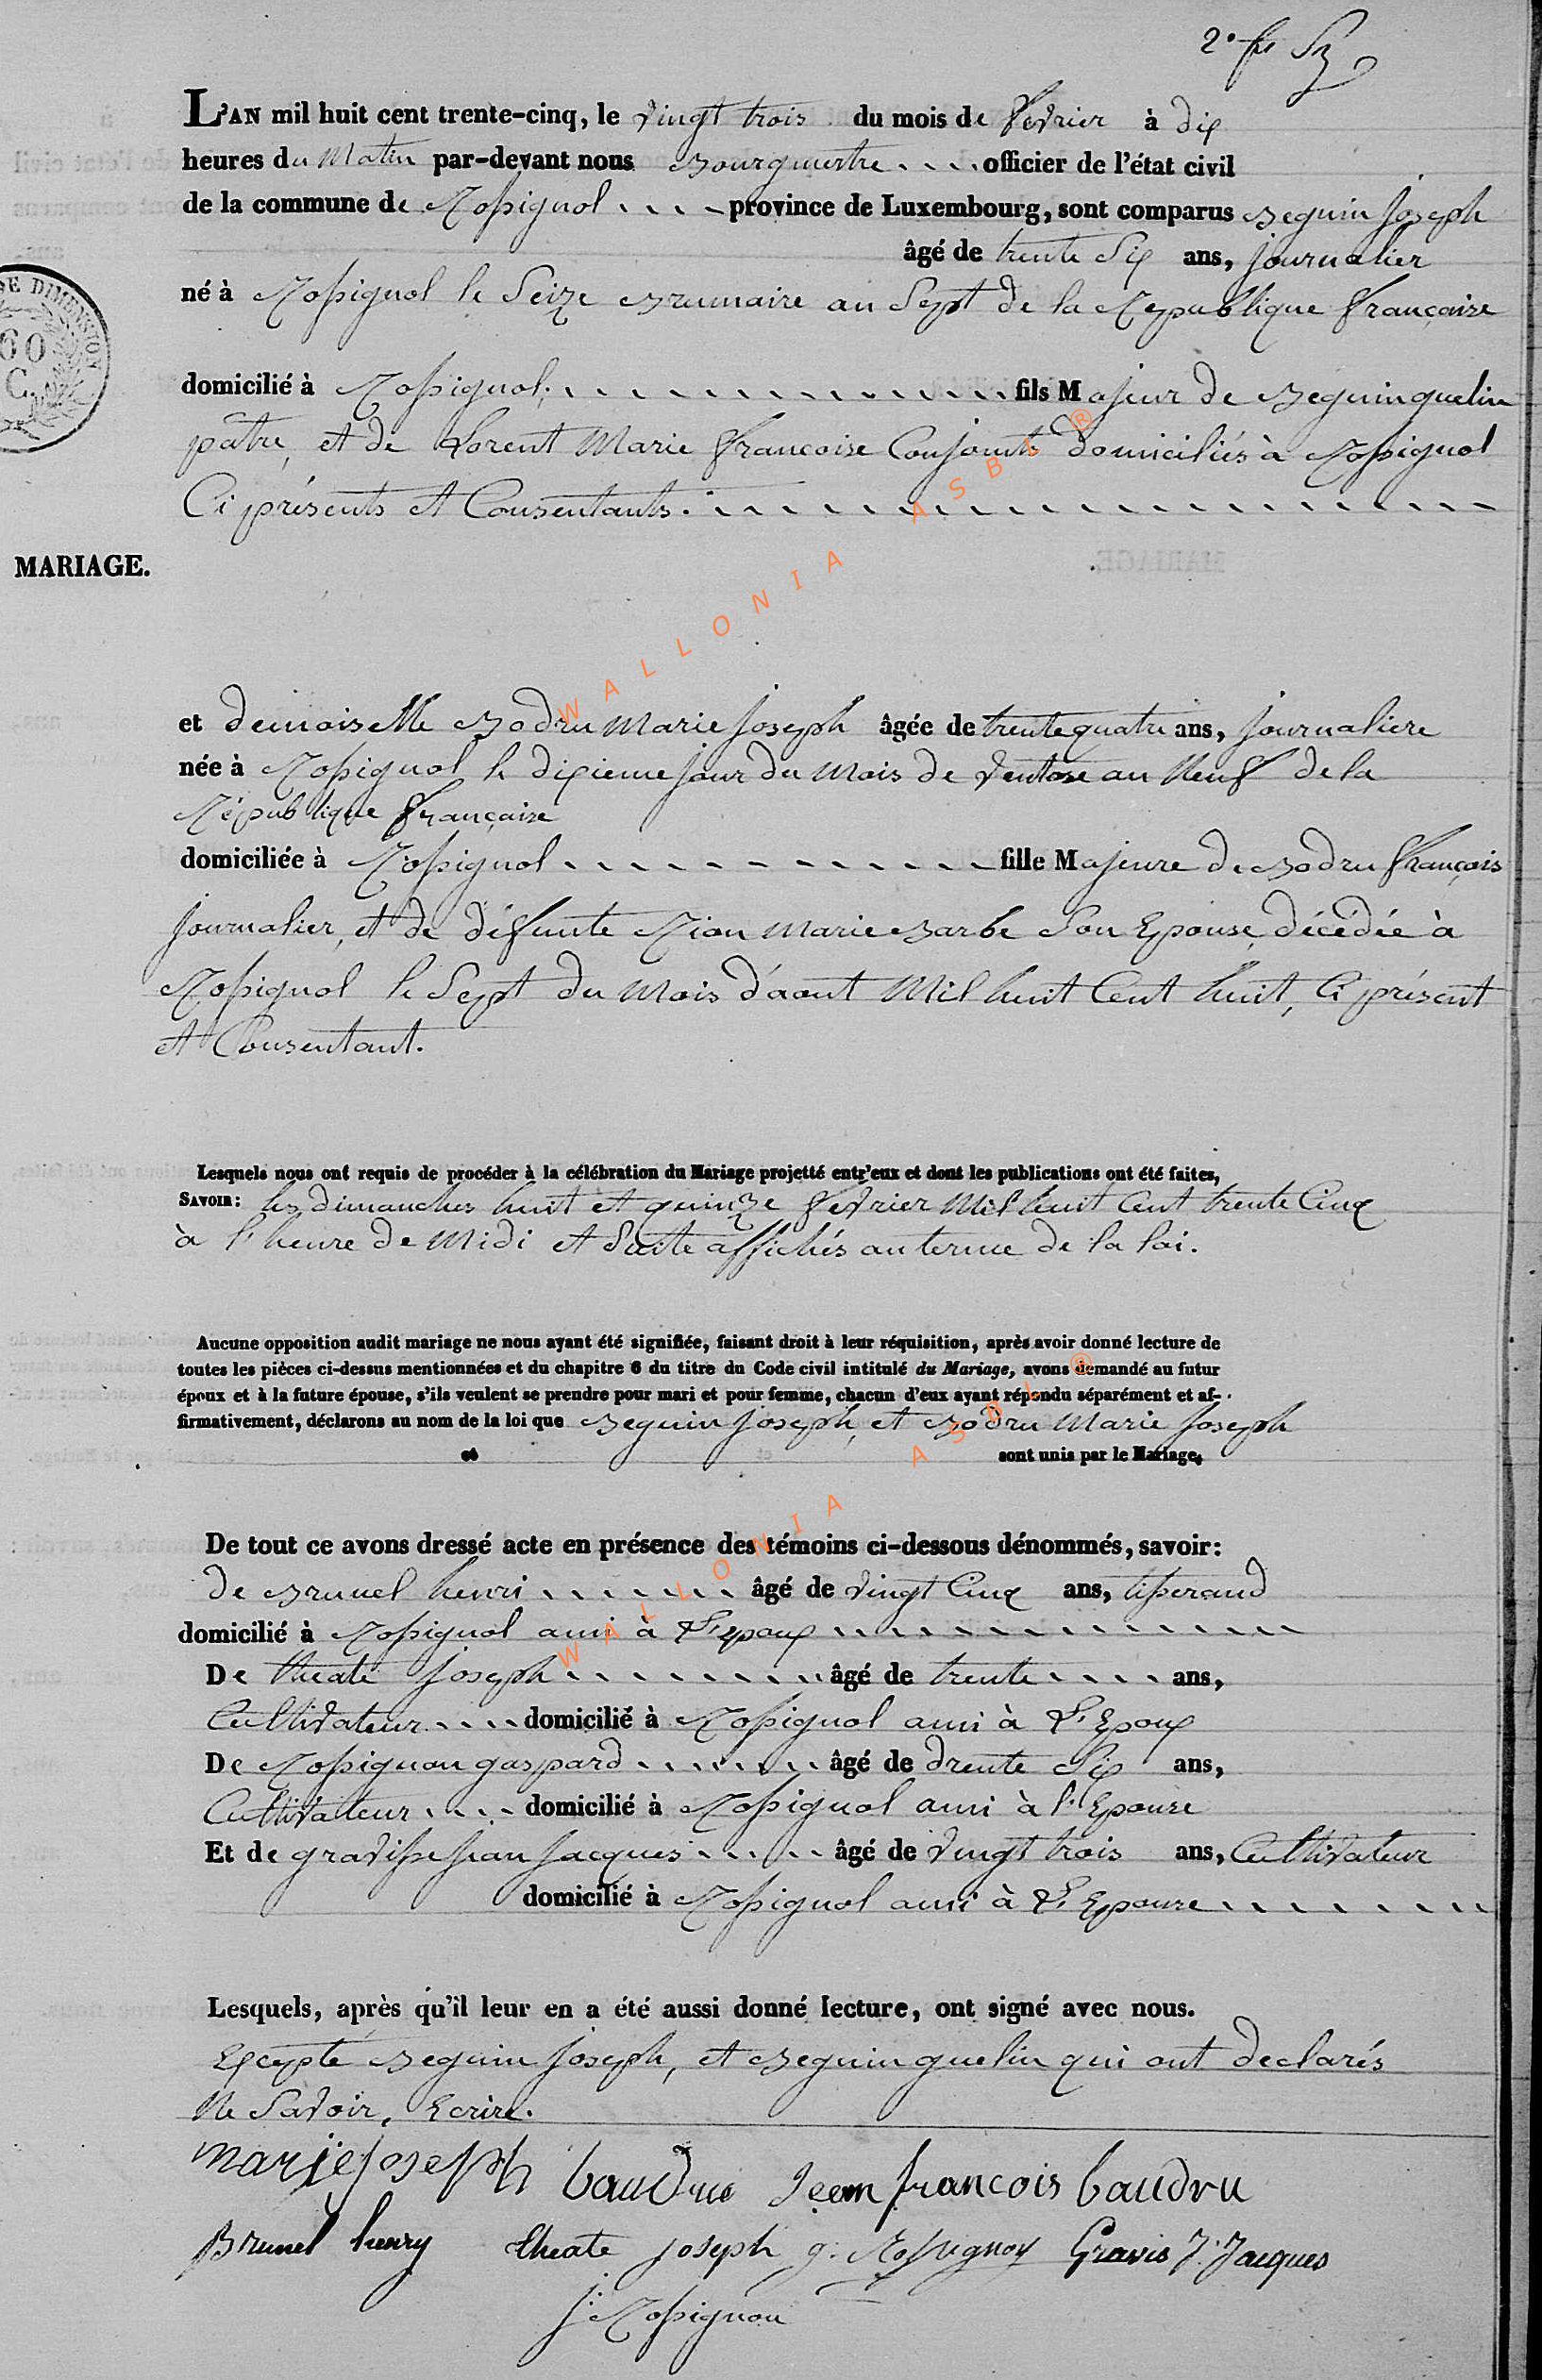 2e f
L'AN mil huit cent trente-cinq, le vingt trois du mois de fevrier à dix
heures du Matin par-devant nous Bourgmestre officier de l'état civil
de la commune de Rossignol province de Luxembourg, sont comparus Beguin Joseph
âgé de trente Six ans, journalier
né à Rossignol le Seize Brumaire an Sept de la Republique française
DE DIMENSION
60
C.
domicilié à Rossignol, fils Majeur de Beguin quelin
pâtre, et de Lorent Marie francoise Conjoints domiciliés à Rossignol
Ci présents et Consentants.
MARIAGE.
et demoiselle Bodru Marie Joseph âgée de trente quatre ans, journaliere
née à Rossignol le dixieme jour du Mois de Ventose an Neuf de la
République française
domiciliée à Rossignol fille Majeure de Bodru François
journalier, et de défunte Rion Marie Barbe Son Epouse, décédée à
Rossignol le Sept du Mois d'aout Mil huit Cent huit, Ci présent
et Consentant.
Lesquels nous ont requis de procéder à la célébration du Mariage projetté entr'eux et dont les publications ont été faites,
SAVOIR: les dimanches huit et quinze fevrier Mil huit Cent trente Cinq
à l'heure de Midi et Suite affichés au terme de la loi.
Aucune opposition audit mariage ne nous ayant été signifiée, faisant droit à leur réquisition, après avoir donné lecture de
toutes les pièces ci-dessus mentionnées et du chapitre 6 du titre du Code civil intitulé du Mariage, avons demandé au futur
époux et à la future épouse, s'ils veulent se prendre pour mari et pour femme, chacun d'eux ayant répondu séparément et af-
firmativement, déclarons au nom de la loi que Beguin Joseph, et Bodru Marie Joseph
et sont unis par le Mariage.
De tout ce avons dressé acte en présence des témoins ci-dessous dénommés, savoir:
de Brunel henri âgé de vingt Cinq ans, tisserand
domicilié à Rossignol ami à L'epoux
De theate Joseph âgé de trente ans,
Cultivateur domicilié à Rossignol ami à L'Epoux
De Rossignon gaspard âgé de trente Six ans,
Cultivateur domicilié à Rossignol ami à l'Epouse
Et de gravisse jean Jacques âgé de vingt trois ans, Cultivateur
domicilié à Rossignol ami à L'Epouse
Lesquels, après qu'il leur en a été aussi donné lecture, ont signé avec nous.
Excepté Beguin Joseph, et Beguin quelin qui ont declarés
Ne Savoir, Ecrire.
marie joseph baudru Jean francois baudru
Brunel henry theate joseph g. Rossignon Gravis J. Jacques
j. Rossignon
WALLONIA ASBL ®
WALLONIA ASBL ®